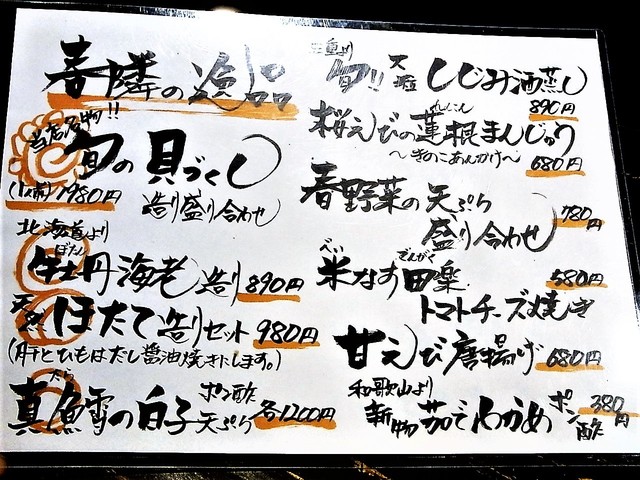 春隣の逸品
当店名物!!
旬の貝づくし
(1人前) 1980円
造り盛り合わせ
北海道より
ぼたん
牡丹海老 造り 890円
天然 ほたて 造りセット 980円
(肝とひもはだし醤油焼きにします。)
たら
真鱈の白子 ポン酢 天ぷら 各1200円
三重より
旬!! 大粒 しじみ酒蒸し
890円
れんこん
桜えびの蓮根まんじゅう
〜きのこあんかけ〜 680円
春野菜の天ぷら
盛り合わせ 780円
べい でんがく
米なす田楽 580円
トマトチーズ焼き
甘えび唐揚げ 680円
和歌山より
新物 茹でわかめ ポン酢 380円